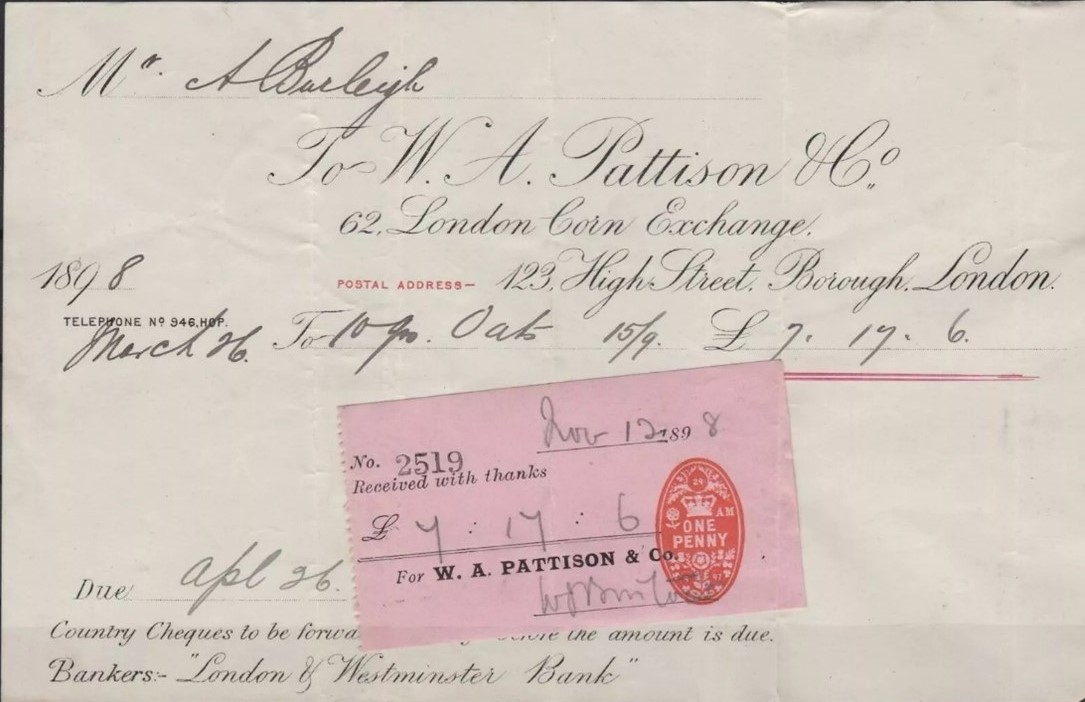 Mr. A Burleigh
To W. A. Pattison & Co.,
62, London Corn Exchange.
1898
POSTAL ADDRESS— 123, High Street, Borough, London.
TELEPHONE No 946, HOP.
March 26. To 10 qrs. Oats 15/9. £ 7. 17. 6.
Nov 12 1898
No. 2519
Received with thanks
£ 7 : 17 : 6
For W. A. PATTISON & Co.
29
AM
ONE
PENNY
Due Apl 26.
Country Cheques to be forwa the amount is due.
Bankers:- "London & Westminster Bank"